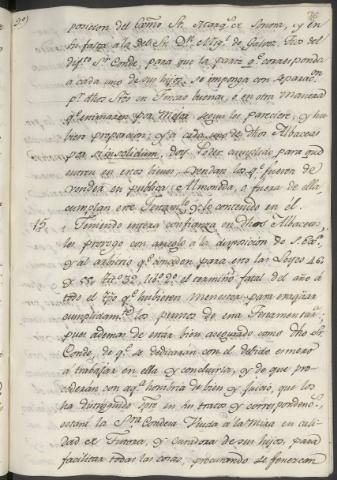 posicion del Exmo. Sr. Marqs. de Sonora, y en
su falta a la del Sr. Dn. Migl. de Galvez Tio del
difto. Sr. Conde, para que la parte qe. corresponda
a cada uno de sus hijos, se imponga con separacon.
pr. dhos Sres en Fincas buenas, o en otra Manera
qe. estimaren por Mejor segun les pareciere, y ha-
bien proporcion; y a cada uno de dhos Albaceas
por si insolidum, doy Poder cumplido para que
entren en estos bienes, vendan los qe. fueren de
vender en publica Almoneda, o fuera de ella
cumplan este Testamto. y lo contenido en el.
15. Teniendo entera confianza en dhos Albaceas,
les prorogo con arreglo a la disposicion de S. Exa.
y al arbitrio qe. conceden para esto las Leyes
el termino fatal del año a
todo el tpo qe. hubieren Menester para
cumplidamte. los puntos de este Testamento
pues ademas de estar bien asegurado como dho Sr.
Conde, de qe. se dedicaran con el debido esmero
a trabajar en ella y concluirla, y de que pro-
cederan con aqla. hombria de bien y juicio, que los
ha distinguido spre en su trato y correspondena.
estará la Sra. Condesa Viuda a la Mira en cali-
dad de Tutora, y curadora de sus hijos, para
facilitar todas las cosas, procurando se